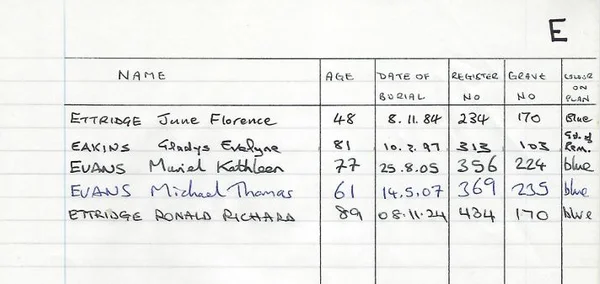 E
NAME AGE DATE OF BURIAL REGISTER NO GRAVE NO COLOUR ON PLAN
ETTRIDGE June Florence 48 8.11.84 234 170 Blue
EAKINS Gladys Evelyne 81 10.2.97 313 103 Gd. of Rem.
EVANS Muriel Kathleen 77 25.8.05 356 224 blue
EVANS Michael Thomas 61 14.5.07 369 235 blue
ETTRIDGE RONALD RICHARD 89 08.11.24 434 170 blue